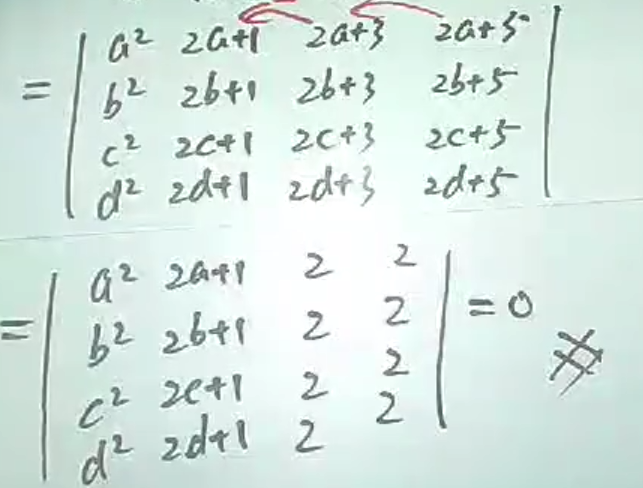 a² 2a+1 2a+3 2a+5
= b² 2b+1 2b+3 2b+5
c² 2c+1 2c+3 2c+5
d² 2d+1 2d+3 2d+5
a² 2a+1 2 2
= b² 2b+1 2 2 = 0
c² 2c+1 2 2
d² 2d+1 2 2